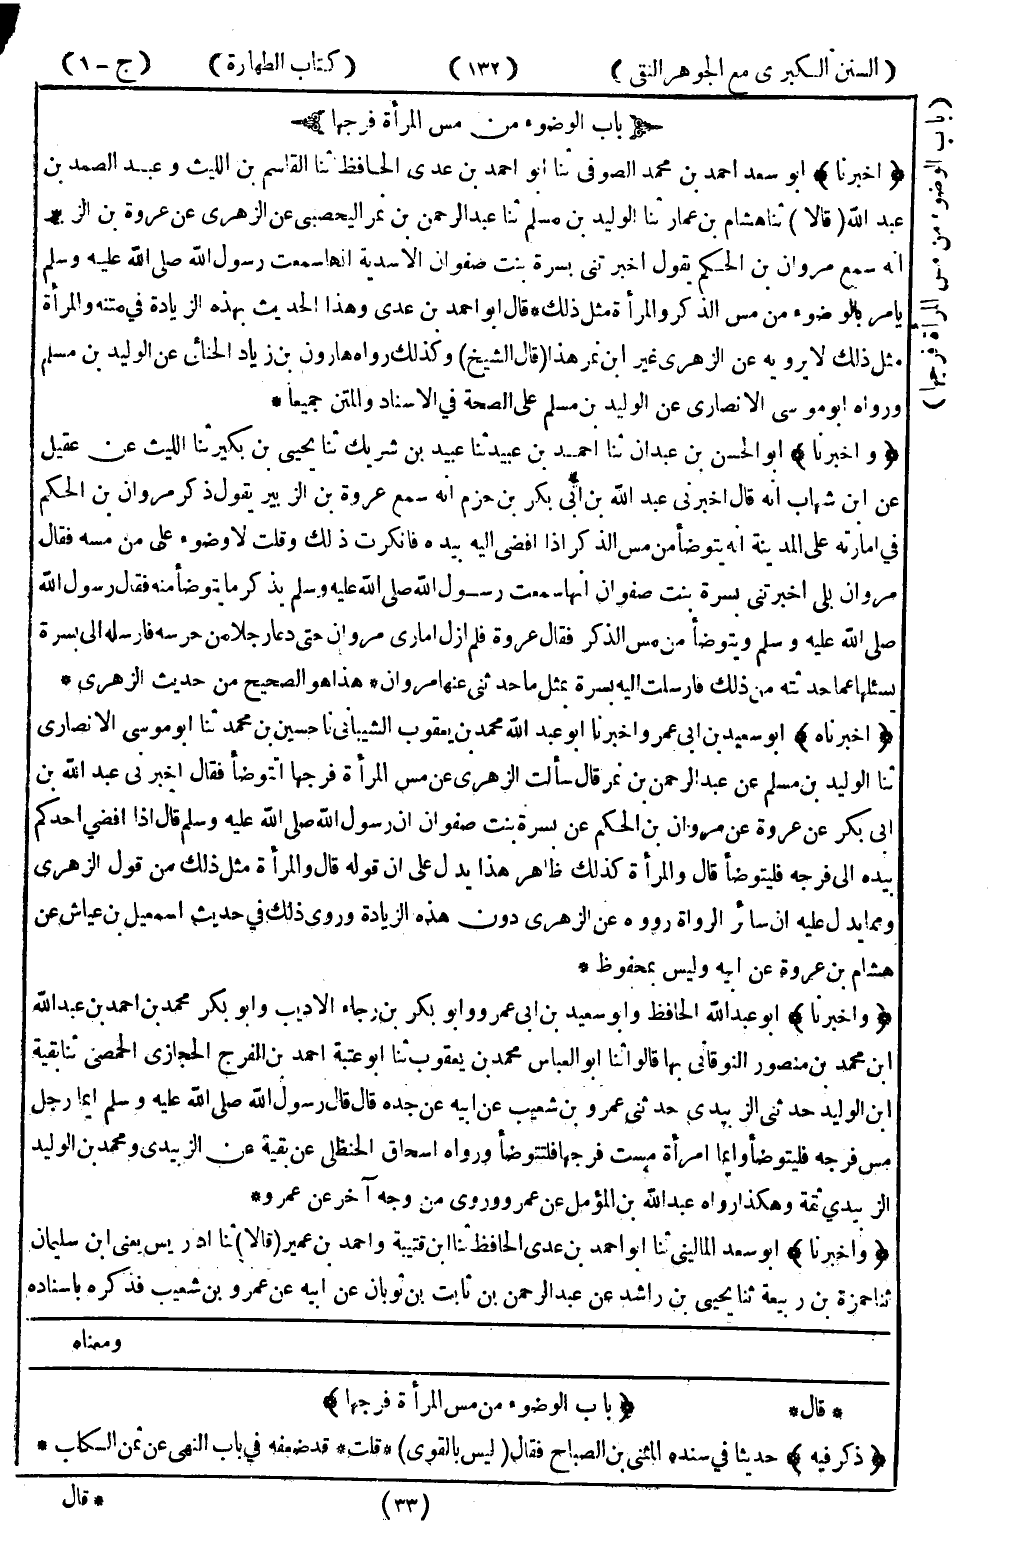 (السنن الكبرى مع الجوهر النقى) (١٣٢) (كتاب الطهارة) (ج - ١)
(باب الوضوء من مس المرأة فرجها)
باب الوضوء من مس المرأة فرجها
﴿ اخبرنا ﴾ ابو سعد احمد بن محمد الصوفى ثنا ابو احمد بن عدى الحافظ ثنا القاسم بن الليث و عبد الصمد بن
عبد الله (قالا) ثنا هشام بن عمار ثنا الوليد بن مسلم ثنا عبدالرحمن بن نمر اليحصبى عن الزهرى عن عروة بن الزبير
انه سمع مروان بن الحكم يقول اخبرتنى بسرة بنت صفوان الاسدية انها سمعت رسول الله صلى الله عليه وسلم
يامر بالوضوء من مس الذكر والمرأة مثل ذلك * قال ابو احمد بن عدى وهذا الحديث بهذه الزيادة فى متنه والمرأة
مثل ذلك لا يرويه عن الزهرى غير ابن نمر هذا (قال الشيخ) وكذلك رواه هارون بن زياد الحنائى عن الوليد بن مسلم
ورواه ابو موسى الانصارى عن الوليد بن مسلم على الصحة فى الاسناد والمتن جميعا *
﴿ و اخبرنا ﴾ ابو الحسن بن عبدان ثنا احمد بن عبيد ثنا عبيد بن شريك ثنا يحيى بن بكير ثنا الليث عن عقيل
عن ابن شهاب انه قال اخبرنى عبد الله بن أبى بكر بن حزم انه سمع عروة بن الزبير يقول ذكر مروان بن الحكم
فى امارته على المدينة انه يتوضأ من مس الذكر اذا افضى اليه بيده فانكرت ذلك وقلت لا وضوء على من مسه فقال
مروان بلى اخبرتنى بسرة بنت صفوان انها سمعت رسول الله صلى الله عليه وسلم يذكر ما يتوضأ منه فقال رسول الله
صلى الله عليه و سلم ويتوضأ من مس الذكر فقال عروة فلم ازل امارى مروان حتى دعا رجلا من حرسه فارسله الى بسرة
يسئلها عما حدثته من ذلك فارسلت اليه بسرة بمثل ما حدثنى عنها مروان * هذا هو الصحيح من حديث الزهرى *
﴿ اخبرناه ﴾ ابو سعيد بن ابى عمرو اخبرنا ابو عبد الله محمد بن يعقوب الشيبانى نا حسين بن محمد ثنا ابو موسى الانصارى
ثنا الوليد بن مسلم عن عبدالرحمن بن نمر قال سألت الزهرى عن مس المرأة فرجها اتتوضأ فقال اخبرنى عبد الله بن
ابى بكر عن عروة عن مروان بن الحكم عن بسرة بنت صفوان ان رسول الله صلى الله عليه وسلم قال اذا افضى احدكم
بيده الى فرجه فليتوضأ قال والمرأة كذلك ظاهر هذا يدل على ان قوله قال والمرأة مثل ذلك من قول الزهرى
ومما يدل عليه ان سائر الرواة رووه عن الزهرى دون هذه الزيادة وروى ذلك فى حديث اسمعيل بن عياش عن
هشام بن عروة عن ابيه وليس بمحفوظ *
﴿ واخبرنا ﴾ ابو عبدالله الحافظ وابو سعيد بن ابى عمرو وابو بكر بن رجاء الاديب وابو بكر محمد بن احمد بن عبدالله
ابن محمد بن منصور النوقانى بها قالوا ثنا ابو العباس محمد بن يعقوب ثنا ابو عتبة احمد بن الفرج الحجازى الحمصى ثنا بقية
ابن الوليد حدثنى الزبيدى حدثنى عمرو بن شعيب عن ابيه عن جده قال قال رسول الله صلى الله عليه وسلم ايما رجل
مس فرجه فليتوضأ وايما امرأة مست فرجها فلتتوضأ ورواه اسحاق الحنظلى عن بقية عن الزبيدى ومحمد بن الوليد
الزبيدي ثقة وهكذا رواه عبدالله بن المؤمل عن عمرو وروى من وجه آخر عن عمرو *
﴿ واخبرنا ﴾ ابو سعد المالينى ثنا ابو احمد بن عدى الحافظ ثنا ابن قتيبة واحمد بن عمير (قالا) ثنا ادريس يعنى ابن سليمان
ثنا حمزة بن ربيعة ثنا يحيى بن راشد عن عبدالرحمن بن ثابت بن ثوبان عن ابيه عن عمرو بن شعيب فذكره باسناده
ومعناه
* قال * ﴿ باب الوضوء من مس المرأة فرجها ﴾
﴿ ذكر فيه ﴾ حديثا فى سنده المثنى بن الصباح فقال (ليس بالقوى) * قلت * قد ضعفه فى باب النهى عن ثمن الكلب *
(٣٣) * قال